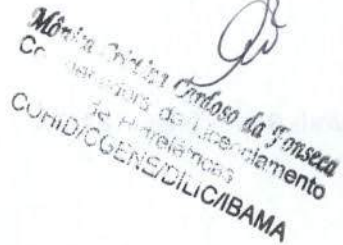 Mônica Cristina Cardoso da Fonseca
Coordenadora de Licenciamento
de Hidrelétricas
COHID/CGENE/DILIC/IBAMA